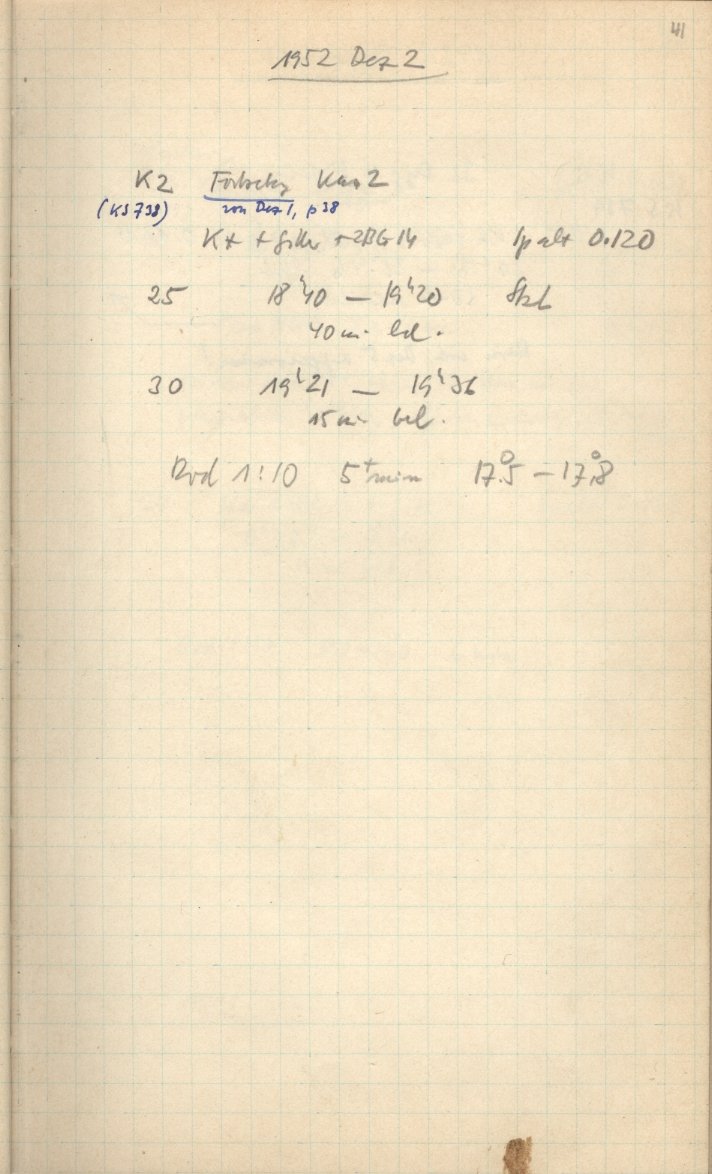 41
1952 Dez 2
K2 Fortsetzg Kam 2
(KS 739) von Dez 1, p 38
+ Gitter + 2BG14 Spalt 0.120
25 18ʰ40 — 19ʰ20
40 min bel.
30 19ʰ21 — 19ʰ36
15 min bel.
Rod 1:10 5⁺min 17°.5 — 17°.8